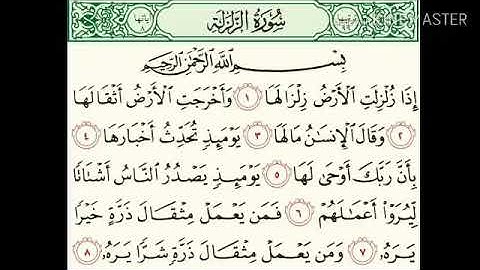 سُورَةُ الزَّلْزَلَةِ
بِسْمِ اللَّهِ الرَّحْمَٰنِ الرَّحِيمِ
إِذَا زُلْزِلَتِ الْأَرْضُ زِلْزَالَهَا ١ وَأَخْرَجَتِ الْأَرْضُ أَثْقَالَهَا
٢ وَقَالَ الْإِنسَانُ مَا لَهَا ٣ يَوْمَئِذٍ تُحَدِّثُ أَخْبَارَهَا ٤
بِأَنَّ رَبَّكَ أَوْحَىٰ لَهَا ٥ يَوْمَئِذٍ يَصْدُرُ النَّاسُ أَشْتَاتًا
لِّيُرَوْا أَعْمَالَهُمْ ٦ فَمَن يَعْمَلْ مِثْقَالَ ذَرَّةٍ خَيْرًا
يَرَهُ ٧ وَمَن يَعْمَلْ مِثْقَالَ ذَرَّةٍ شَرًّا يَرَهُ ٨